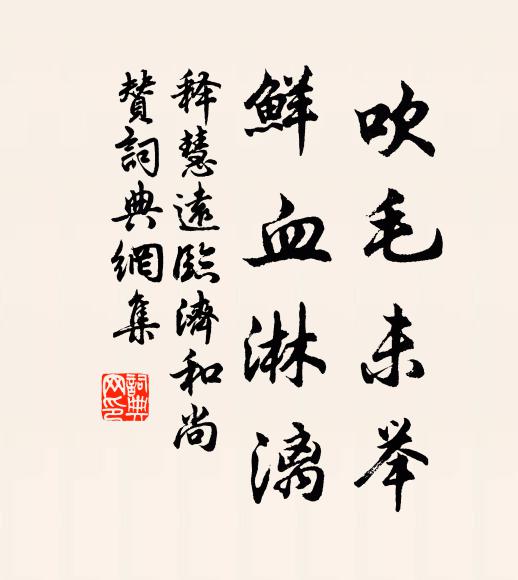 吹毛未举
鲜血淋漓
释慧远臨濟和尚
赞詞典網集
詞典网印